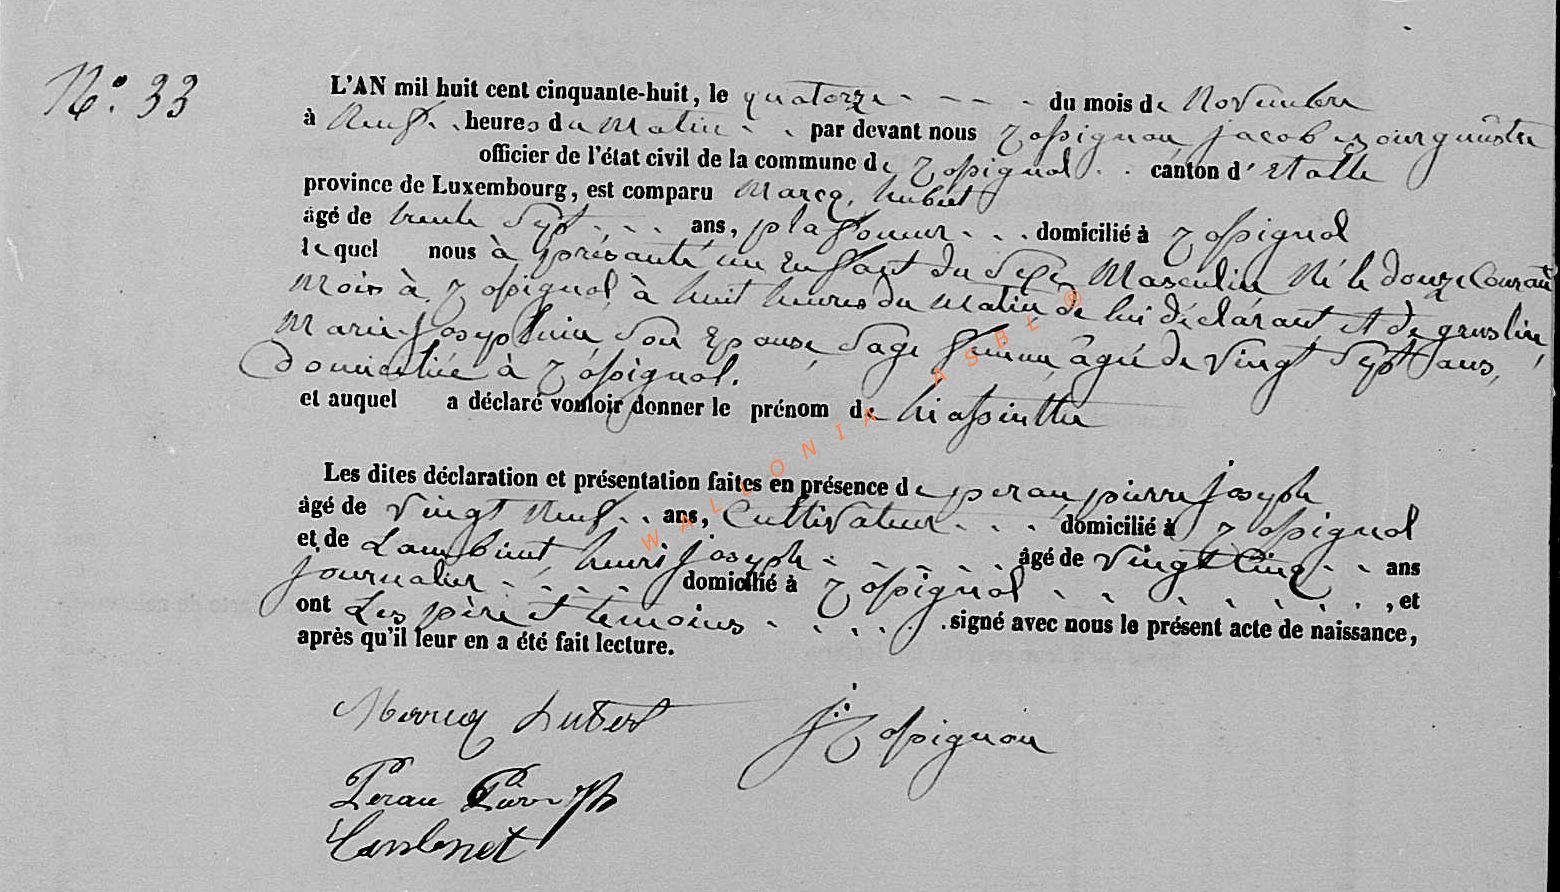 N.º 33
L'AN mil huit cent cinquante-huit, le quatorze du mois de Novembre
à Neuf heures du Matin par devant nous Rossignon jacob bourgmêstre
officier de l'état civil de la commune de Rossignol canton d'Etalle
province de Luxembourg, est comparu Marcq, hubert
âgé de trente Sept ans, plafoneur domicilié à Rossignol
lequel nous à présanté un Enfant du Sexe Masculin Né le douze Courant
Mois à Rossignol à huit heures du Matin de lui déclárant et de
Marie-Josephine Son Epouse, Sage femme, âgée de Vingt Sept ans,
domiciliée à Rossignol.
et auquel a déclaré vouloir donner le prénom de hiassinthe
Les dites déclaration et présentation faites en présence de perau pierre Joseph
âgé de Vingt Neuf ans, Cultivateur domicilié à Rossignol
et de Lambinet, henri joseph âgé de Vingt Cinq ans
journalier domicilié à Rossignol, et
ont Les père et temoins signé avec nous le présent acte de naissance,
après qu'il leur en a été fait lecture.
hubert J. Rossignon
Perau
Lambinet
WALLONIA ASBL ®